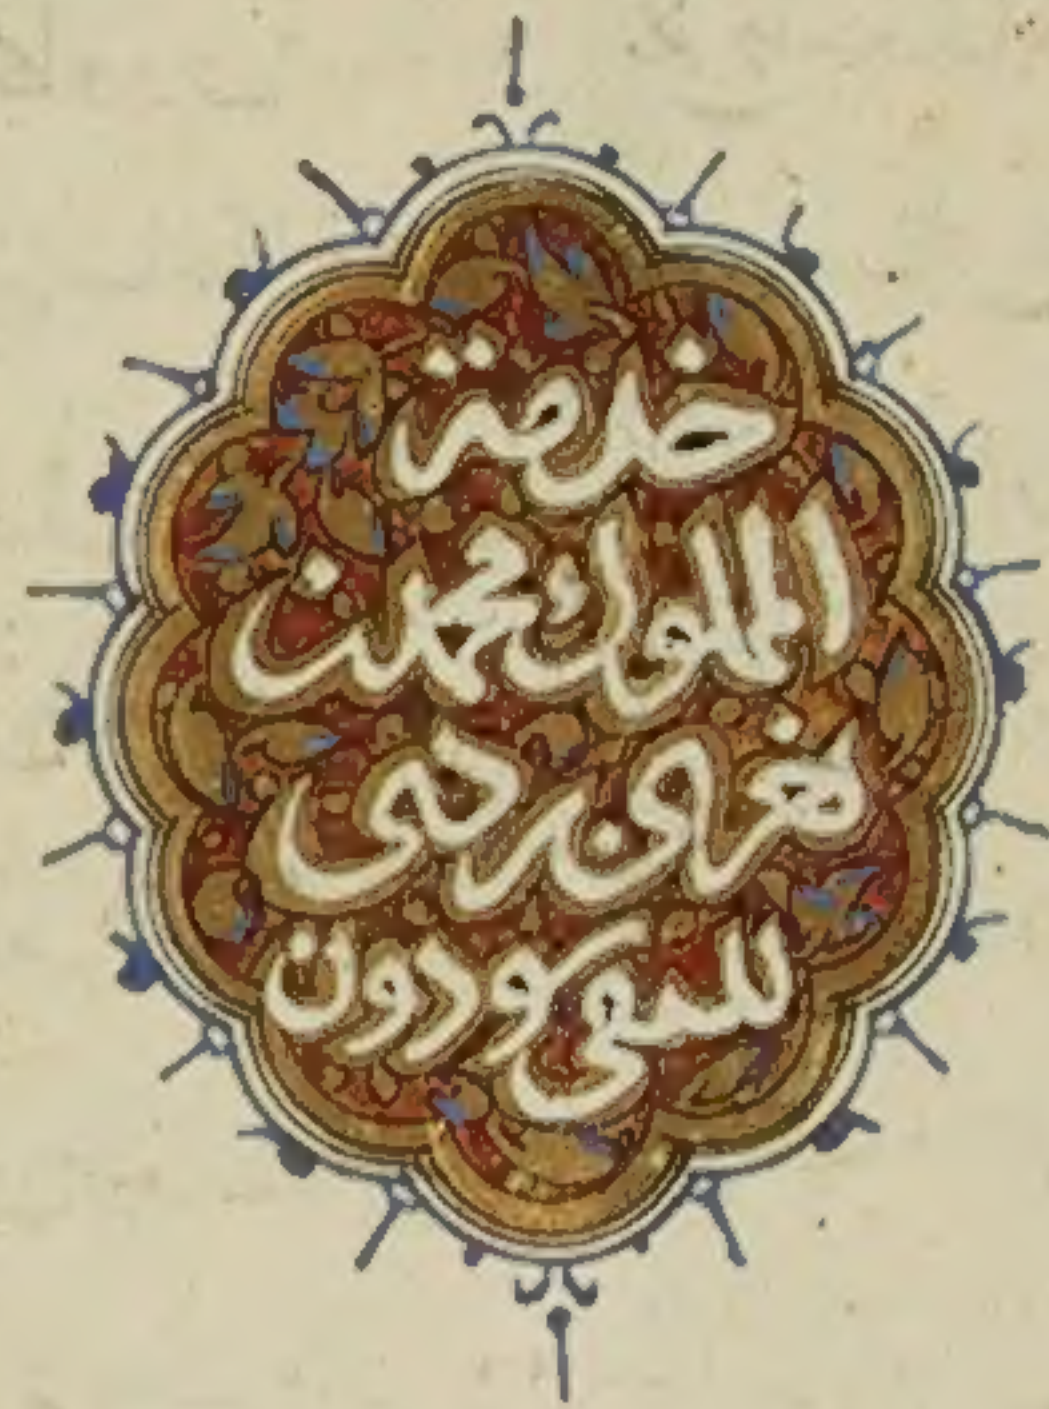 خدمة
المملوك محمد بن
تغري بردي
للسيفي دوون